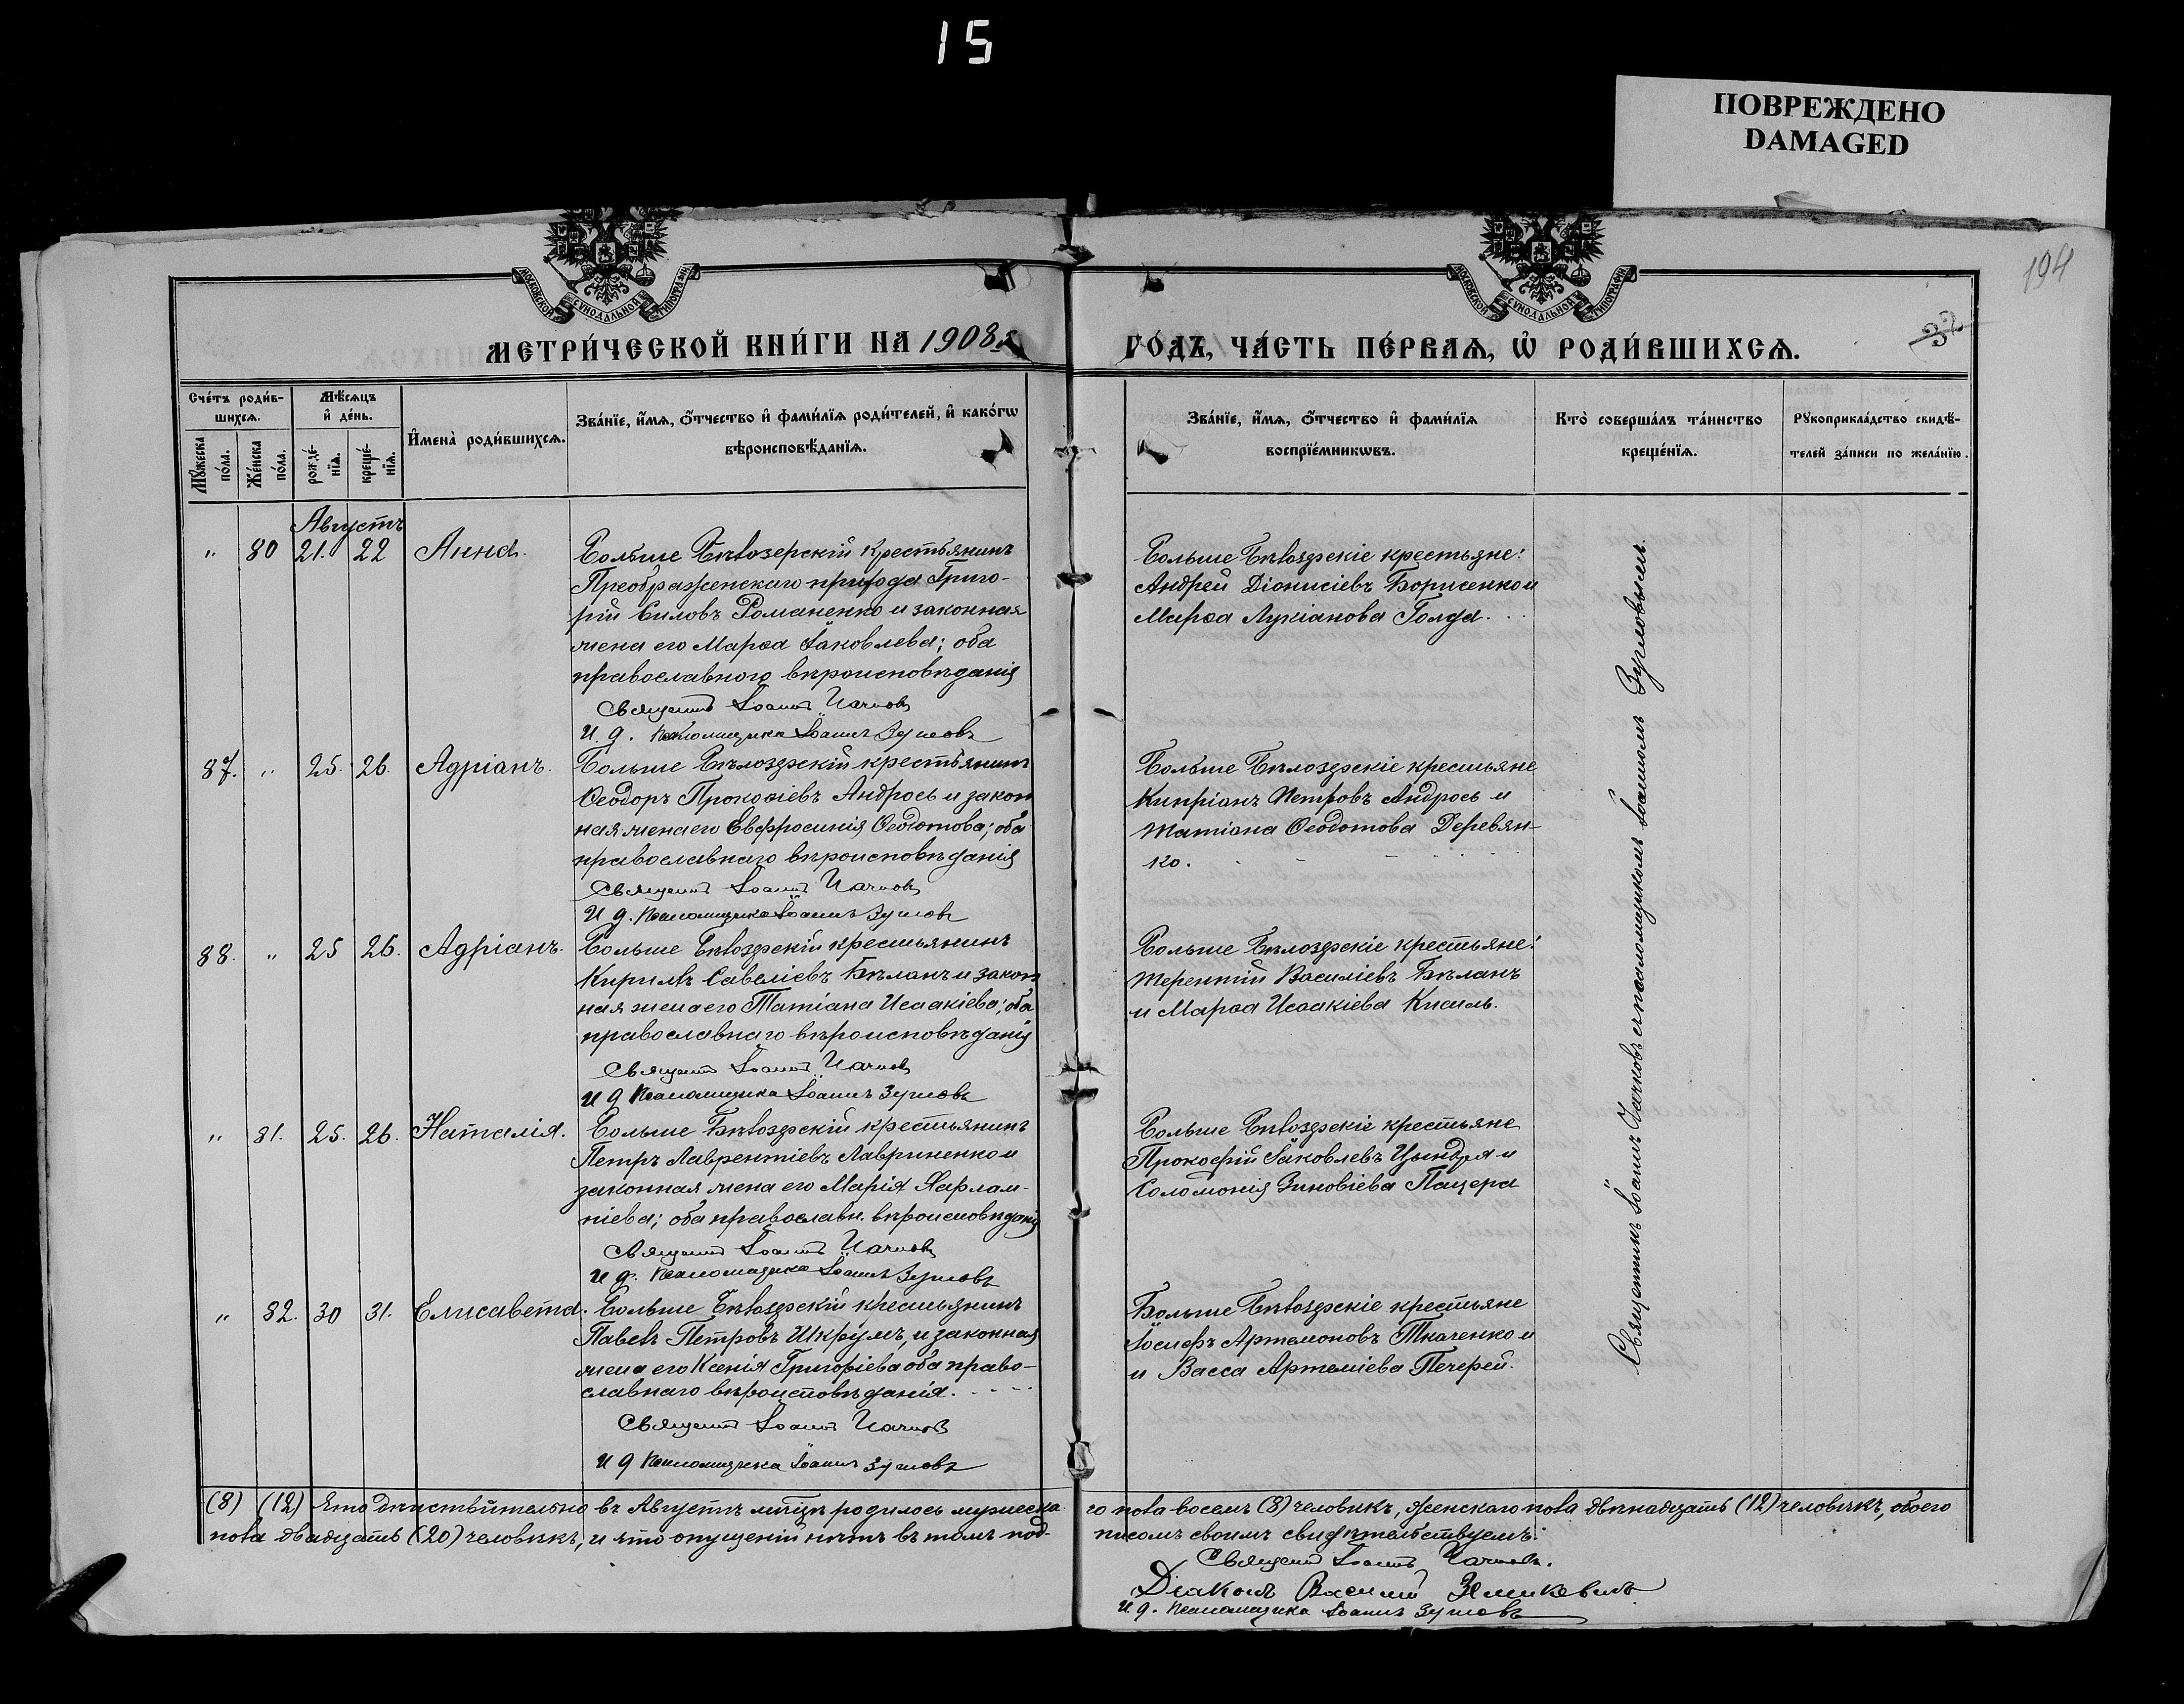 15
ПОВРЕЖДЕНО
DAMAGED
194
32
МОСКОВСКОЙ СѴНОДАЛЬНОЙ ТИПОГРАФІИ
МОСКОВСКОЙ СѴНОДАЛЬНОЙ ТИПОГРАФІИ
МЕТРИ́ЧЕСКОЙ КНИ́ГИ НА 1908
ГО́ДЪ, ЧА́СТЬ ПЕ́РВАѦ, Ѡ҆ РОДИ́ВШИХСѦ.
Сче́тъ роди́в-
шихсѧ.
Мꙋ́жеска по́ла.
Же́нска по́ла.
Мѣ́сѧцъ
и҆ де́нь.
рожде́-
нїѧ.
креще́-
нїѧ.
И҆мена̀ роди́вшихсѧ.
Зва́нїе, и҆́мѧ, ѻ҆́тчество и҆ фами́лїѧ роди́телей, и҆ како́гѡ
вѣроисповѣ́данїѧ.
Зва́нїе, и҆́мѧ, ѻ҆́тчество и҆ фами́лїѧ
воспрїе́мникѡвъ.
Кто̀ соверша́лъ та́инство
креще́нїѧ.
Рꙋкоприкла́дство свидѣ́-
телей за́писи по жела́нїю.
Августъ
" 80 21. 22 Анна.
Больше Бѣлозерскій крестьянинъ
Преображенскаго прихода Григо-
рій Силовъ Романенко и законная
жена его Марѳа Іаковлева; оба
православного вѣроисповѣданія
Священ Іоанн
И. д. псаломщика Іоаннъ Зуиовъ
Больше Бѣлозерскіе крестьяне:
Андрей Діонисіевъ Борисенко и
Марѳа Лукіанова Голда.
87. " 25. 26. Адріанъ.
Больше Бѣлозерскій крестьянинъ
Ѳеодоръ Прокопіевъ Андрось и закон
ная жена его Евфросинія Ѳеодотова; оба
православнаго вѣроисповѣданія
Священ Іоанн
И д. псаломщика Іоаннъ
Больше Бѣлозерскіе крестьяне
Кипріанъ Петровъ Андрось и
Татіана Ѳеодотова Деревян-
ко.
88. " 25 26. Адріанъ.
Больше Бѣлозерскій крестьянинъ
Кирилъ Савеліевъ Бѣланъ и закон
ная жена его Татіана Исаакіева; оба
православнаго вѣроисповѣданія
Священ Іоанн
И д псаломщика Іоаннъ
Больше Бѣлозерскіе крестьяне:
Терентій Василіевъ Бѣланъ
и Марѳа Исаакіева Кисиль.
" 81. 25. 26. Наталія.
Больше Бѣлозерскій крестьянинъ
Петръ Лаврентіевъ Лавриненко и
законная жена его Марія Харлам-
піева; оба православн. вѣроисповѣданія
Священ Іоанн
И д. псаломщика Іоаннъ
Больше Бѣлозерскіе крестьяне
Прокофій Іаковлевъ Цындря и
Соломонія Зиновіева Пацера
" 82. 30 31. Елисавета.
Больше Бѣлозерскій крестьянинъ
Павелъ Петровъ Шкрумъ, и законная
жена его Ксенія Григоріева оба право-
славнаго вѣроисповѣданія.
Священ Іоанн
И д псаломщика Іоаннъ
Больше Бѣлозерскіе крестьяне
Іосифъ Артемоновъ Ткаченко и
и Васса Артеміева Печерей.
Священникъ Іоаннъ съ псаломщикомъ Іоанномъ
(8) (12) Что дѣйствительно въ Августѣ мѣсяцѣ родилось мужеска-
го пола восемь (8) человѣкъ, женскаго пола двѣнадцать (12) человѣкъ, обоего
пола двадцать (20) человѣкъ, и что опущеній нѣтъ въ томъ под-
писомъ своимъ свидѣтельствуемъ:
Священ Іоаннъ
Діаконъ Василій
И. д. псаломщика Іоаннъ